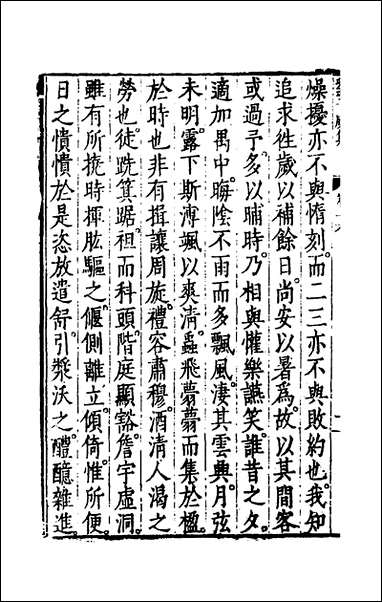 燥擾亦不與惰刻而二三亦不與敗約也我知
追求徃歲以補餘日尚安以暑爲故以其間客
或過予多以晡時乃相與懽樂讌笑誰昔之夕
適加禺中晦陰不雨而多飄風淒其雲興月弦
未明露下斯溥颯以爽淸蟲飛薨薨而集於楹
於時也非有揖讓周旋禮容肅穆酒淸人渴之
勞也徒跣箕踞袒而科頭階庭顯豁詹宇虛洞
雖有所撓時揮肱驅之偃側離立傾倚惟所便
日之憒憒於是恣放遣舒引漿沃之醴醷雜進